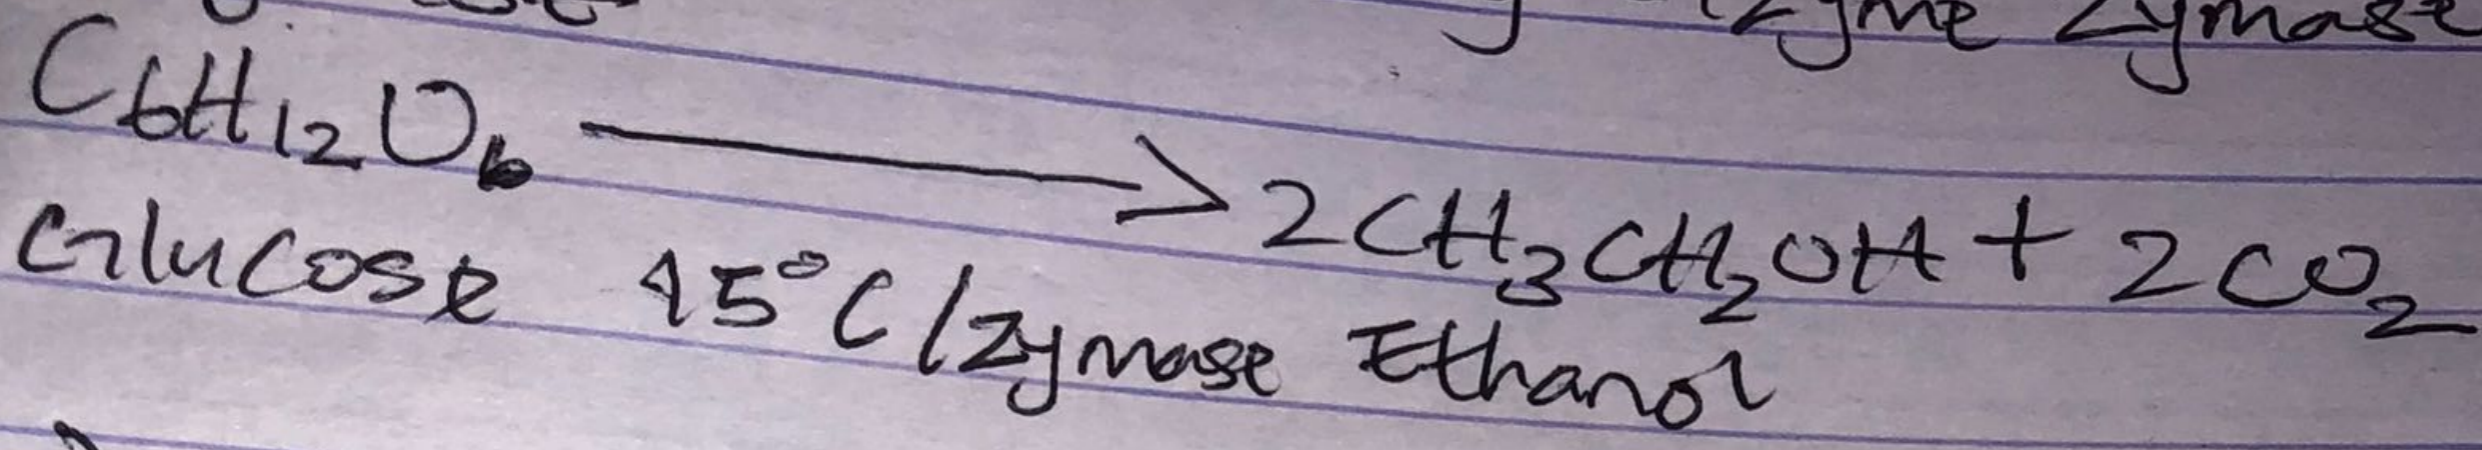 zyme zymase
C₆H₁₂O₆ ⟶ 2CH₃CH₂OH + 2CO₂
Glucose 15°C/zymase Ethanol